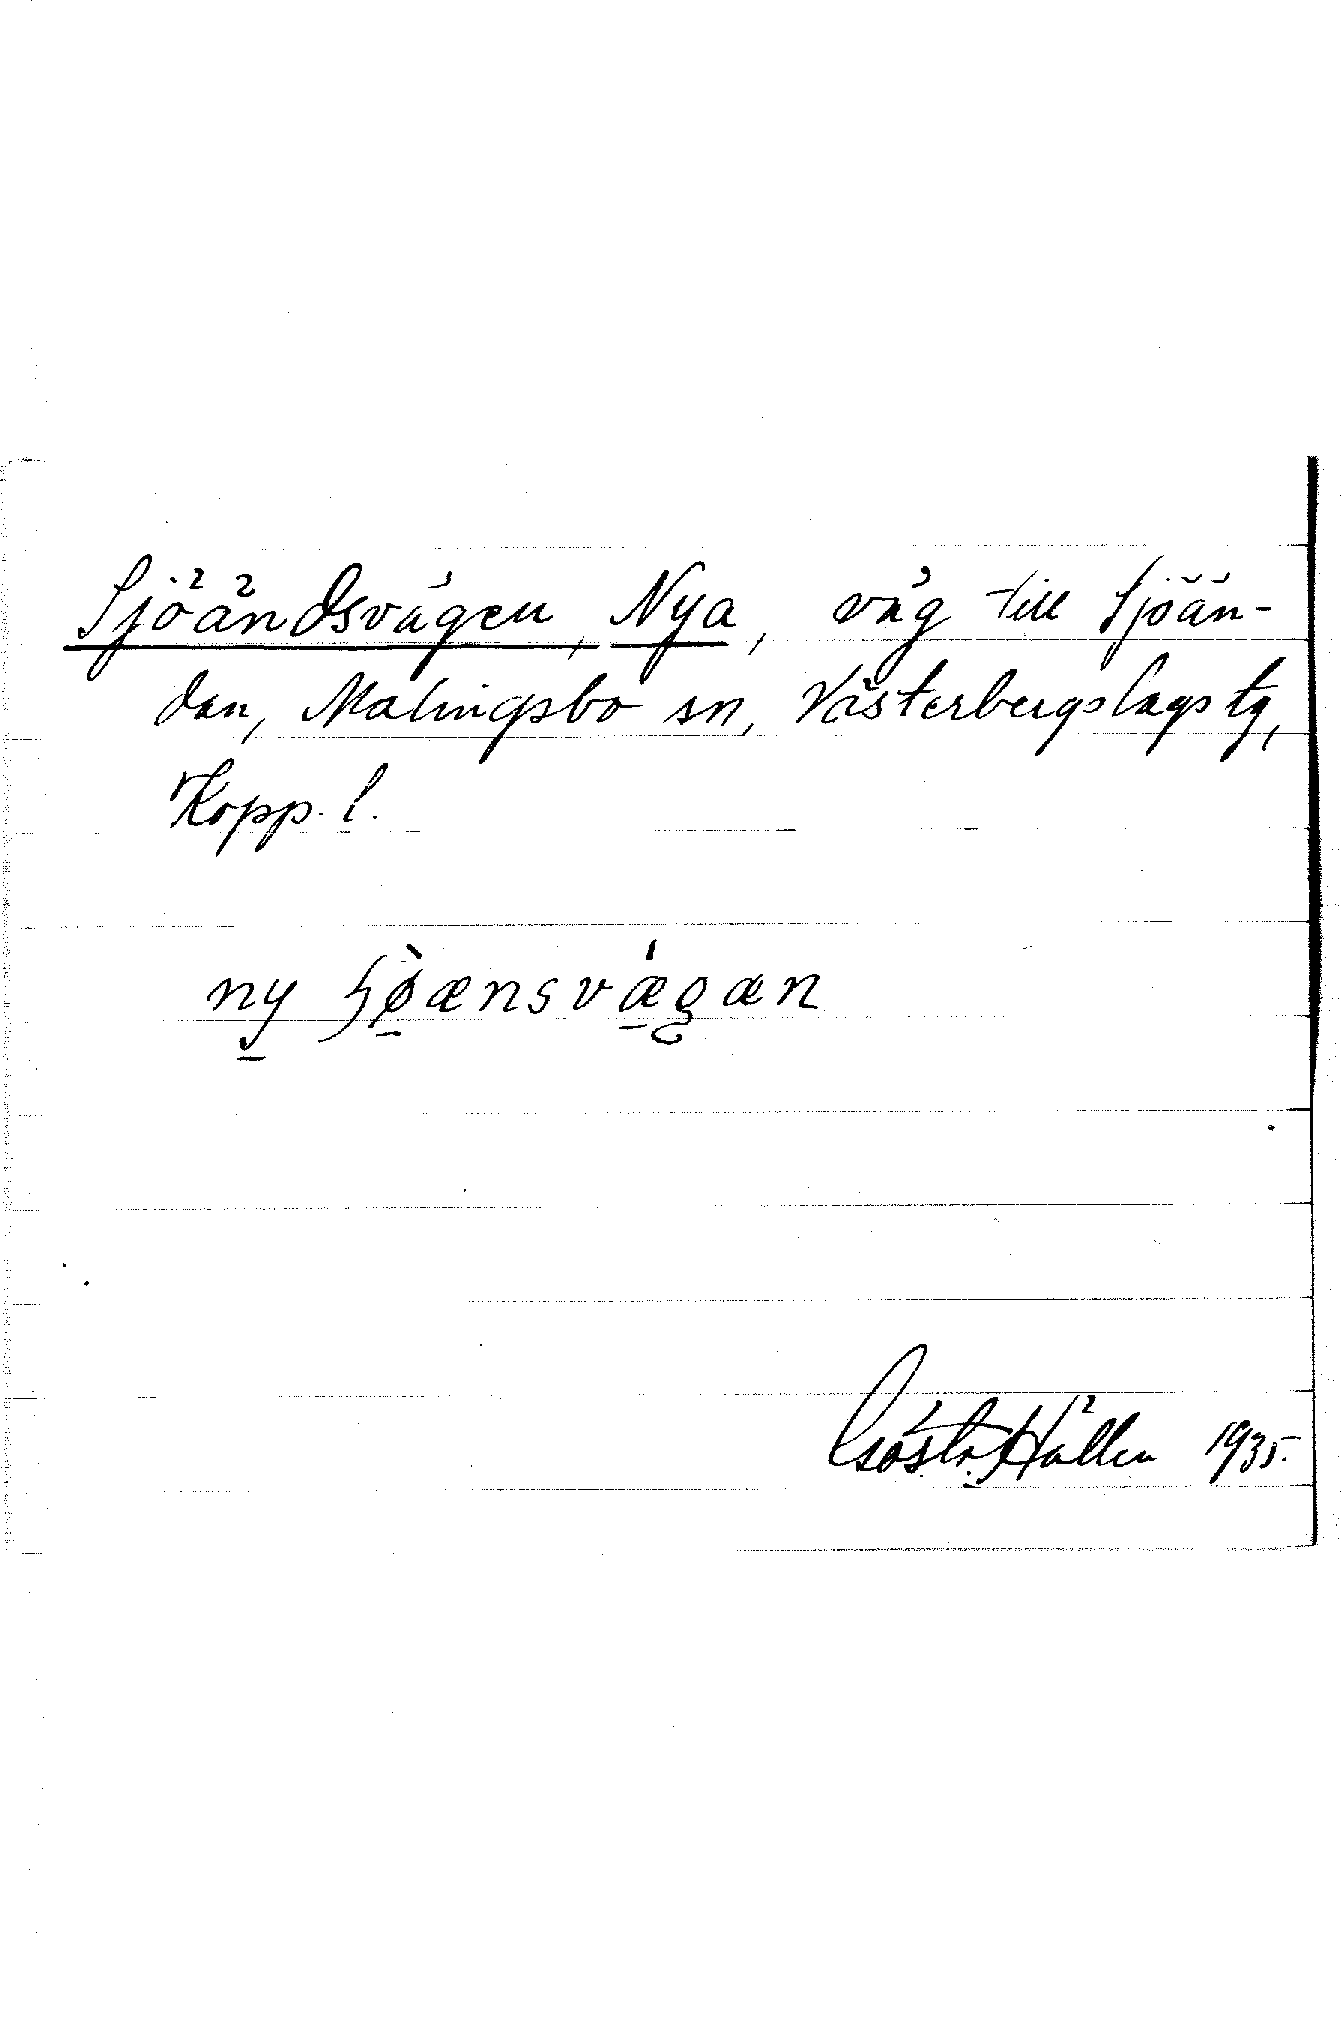 Sjöändsvägen, Nya, väg till Sjöän-
dan, Malingsbo sn, Västerbergslags tg,
Kopp. l.
ny ʃø̀ænsvǽgæn
Gösta Hällen 1935.